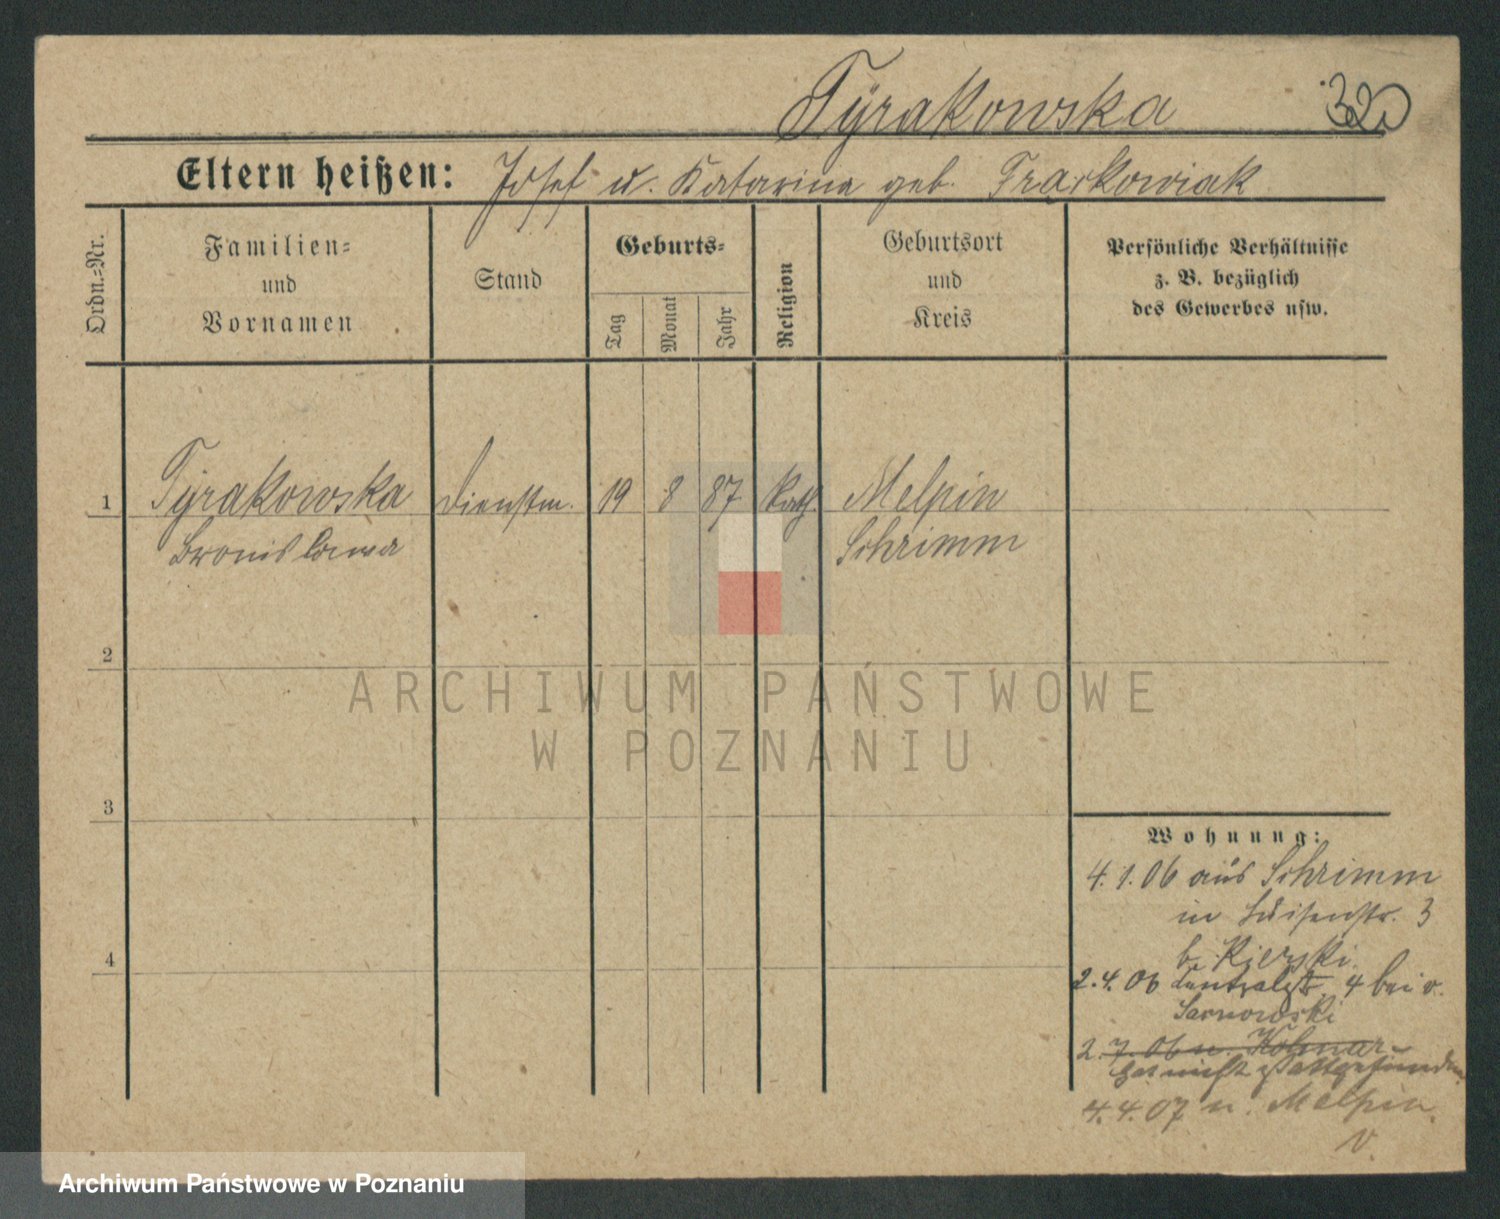 Tÿrakowska
320
Eltern heißen: Josef u. Katarina geb. Traskowiak
Ordn.=Nr.
Familien=
und
Vornamen
Stand
Geburts=
Tag
Monat
Jahr
Religion
Geburtsort
und
Kreis
Persönliche Verhältnisse
z. B. bezüglich
des Gewerbes usw.
1 Tÿrakowska Dienstm. 19 8 87 kath. Melpin
Bronislawa Schrimm
2
3
4
Wohnung:
4.1.06 aus Schrimm
in Luisenstr. 3
b. Kierski
2.4.06 Centralstr. 4 bei v.
Sarnowski
2.7.06 n. Kolmar
hat nicht stattgefunden
4.4.07 n. Melpin.
v.
ARCHIWUM PAŃSTWOWE
W POZNANIU
Archiwum Państwowe w Poznaniu